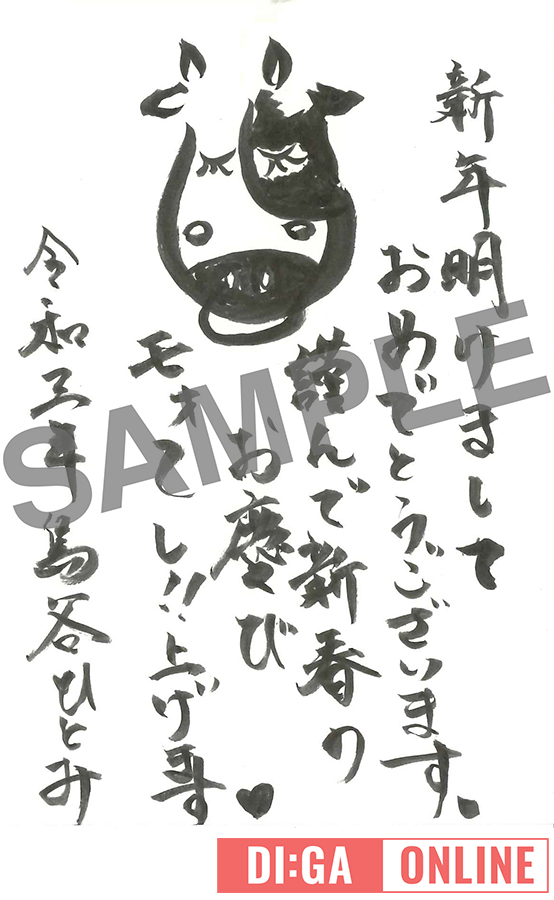 新年明けまして
おめでとうございます、
謹んで新春の
お慶び♥
モォ〜し!!上げます
令和三年 島谷ひとみ
SAMPLE
DI:GA ONLINE